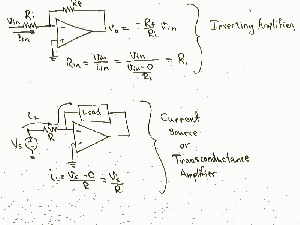 Rf
Vin Ri
iin
Vo = -Rf/Ri Vin
Inverting Amplifier
Rin = Vin/iin = Vin/((Vin-0)/Ri) = Ri
Load
iL
R
Vs
iL = (Vs-0)/R = Vs/R
Current
Source
or
Transconductance
Amplifier